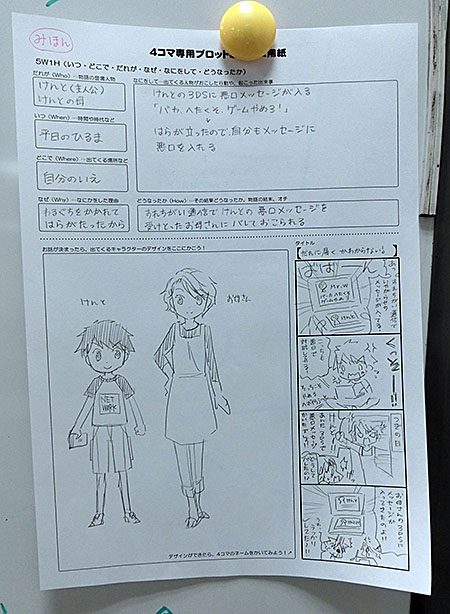 みほん
4コマ専用プロット
用紙
5W1H(いつ・どこで・だれが・なぜ・なにをして・どうなったか)
だれが(Who)―物語の登場人物
けんと(主人公)
けんとの母
いつ(When)―時間や時代など
平日のひるま
どこで(Where)―出てくる場所など
自分のいえ
なにをして―出てくる人物がおこした行動や、起こった出来事
けんとの3DSに悪口メッセージが入る
「バカ、へたくそ、ゲームやめろ!」
はらが立ったので、自分もメッセージに
悪口を入れる
なぜ(Why)―なにかをした理由
わるぐちをかかれて
はらがたったから
どうなったか(How)―その結果どうなったか。物語の結末、オチ
すれちがい通信でけんとの悪口メッセージを
受けとったお母さんにバレておこられる
お話が決まったら、出てくるキャラクターのデザインをここにかこう!
けんと
お母さん
NET
WORK
デザインができたら、4コマのネームをかいてみよう!
タイトル
だれに届くかわからない!
Mr.W
つぎの日
お母さんの3DSに
メッセージが
入ってきたわよ!!